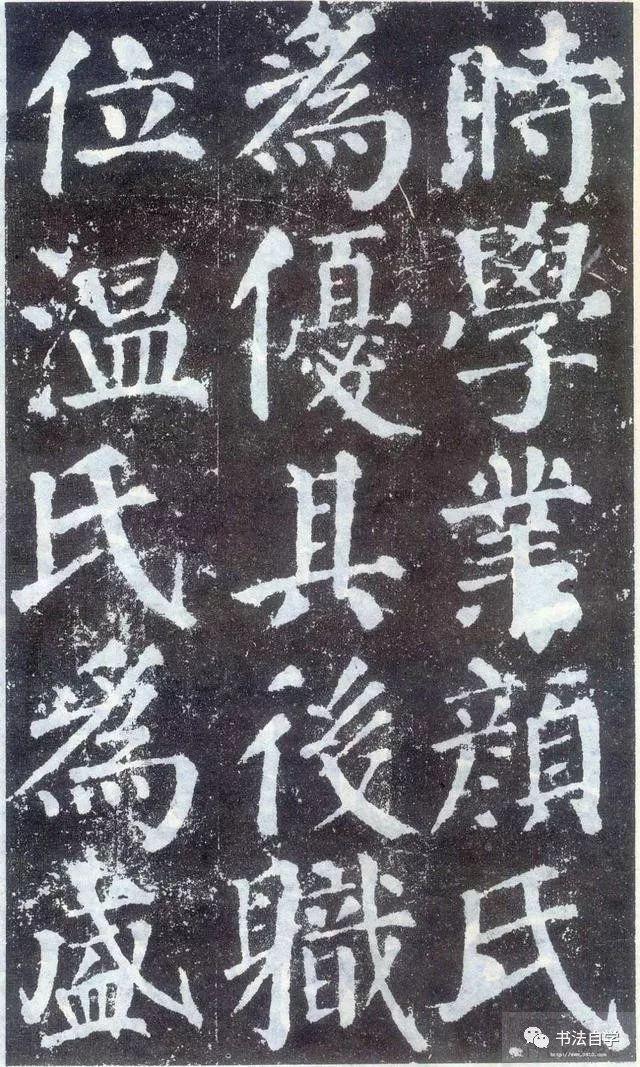 時學業顏氏
為優其後職
位温氏為盛
书法自学